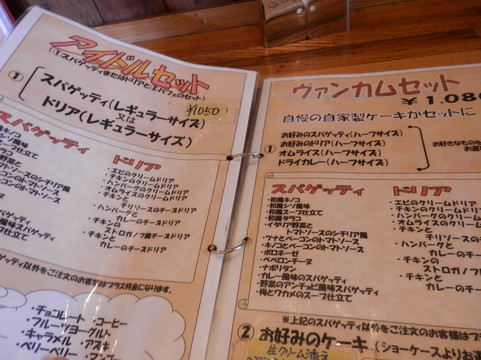 アイドルセット
(1.スパゲッティまたはドリアとミニパフェのセット)
¥1050!
①
スパゲッティ(レギュラーサイズ)
又は
ドリア(レギュラーサイズ)
スパゲッティ
ドリア
・エビのクリームドリア
・チキンのクリームドリア
・ハンバーグのクリームドリア
・オムライスのクリームドリア
・チキンと
デリソースのチーズドリア
・ハンバーグと
カレーのチーズドリア
・チキンの
ストロガノフ風チーズドリア
・チキンと
カレーのチーズドリア
スパゲッティ以外をご注文のお客様はプラス料金になります。
・チョコレート・コーヒー
・フルーツヨーグルト
・キャラメル・アズキ
・ベリーベリー
ヴァンカムセット
¥1.080
自慢の自家製ケーキがセットに
①
お好みのスパゲッティ(ハーフサイズ)
お好みのドリア(ハーフサイズ)
オムライス(ハーフサイズ)
和風ドライカレー(ハーフサイズ)
お好きなもの
スパゲッティ
・和風キノコ
・和風シソ風味
・和風スープ仕立て
・和風タラコ
・イタリア野菜と
トマトソースのシチリア風
・ツナとベーコンのトマトソース
・キノコとベーコンのトマトソース
・ボロネーゼ
・ペペロンチーノ
・ナポリタン
・カレー風味のスパゲッティ
・野菜のアンチョビ風味スパゲッティ
・梅とワカメのスープ仕立て
ドリア
・エビのクリームドリア
・チキンのクリームドリ
・ハンバーグのクリーム
・オムライスのクリーム
・チキンと
・ハンバーグと
カレーの
・チキンの
ストロガノフ
・チキンと
カレーの
※上記のスパゲッティ以外をご注文のお客様はプラ
②お好みのケーキ(ショーケースよりお
生クリーム添え